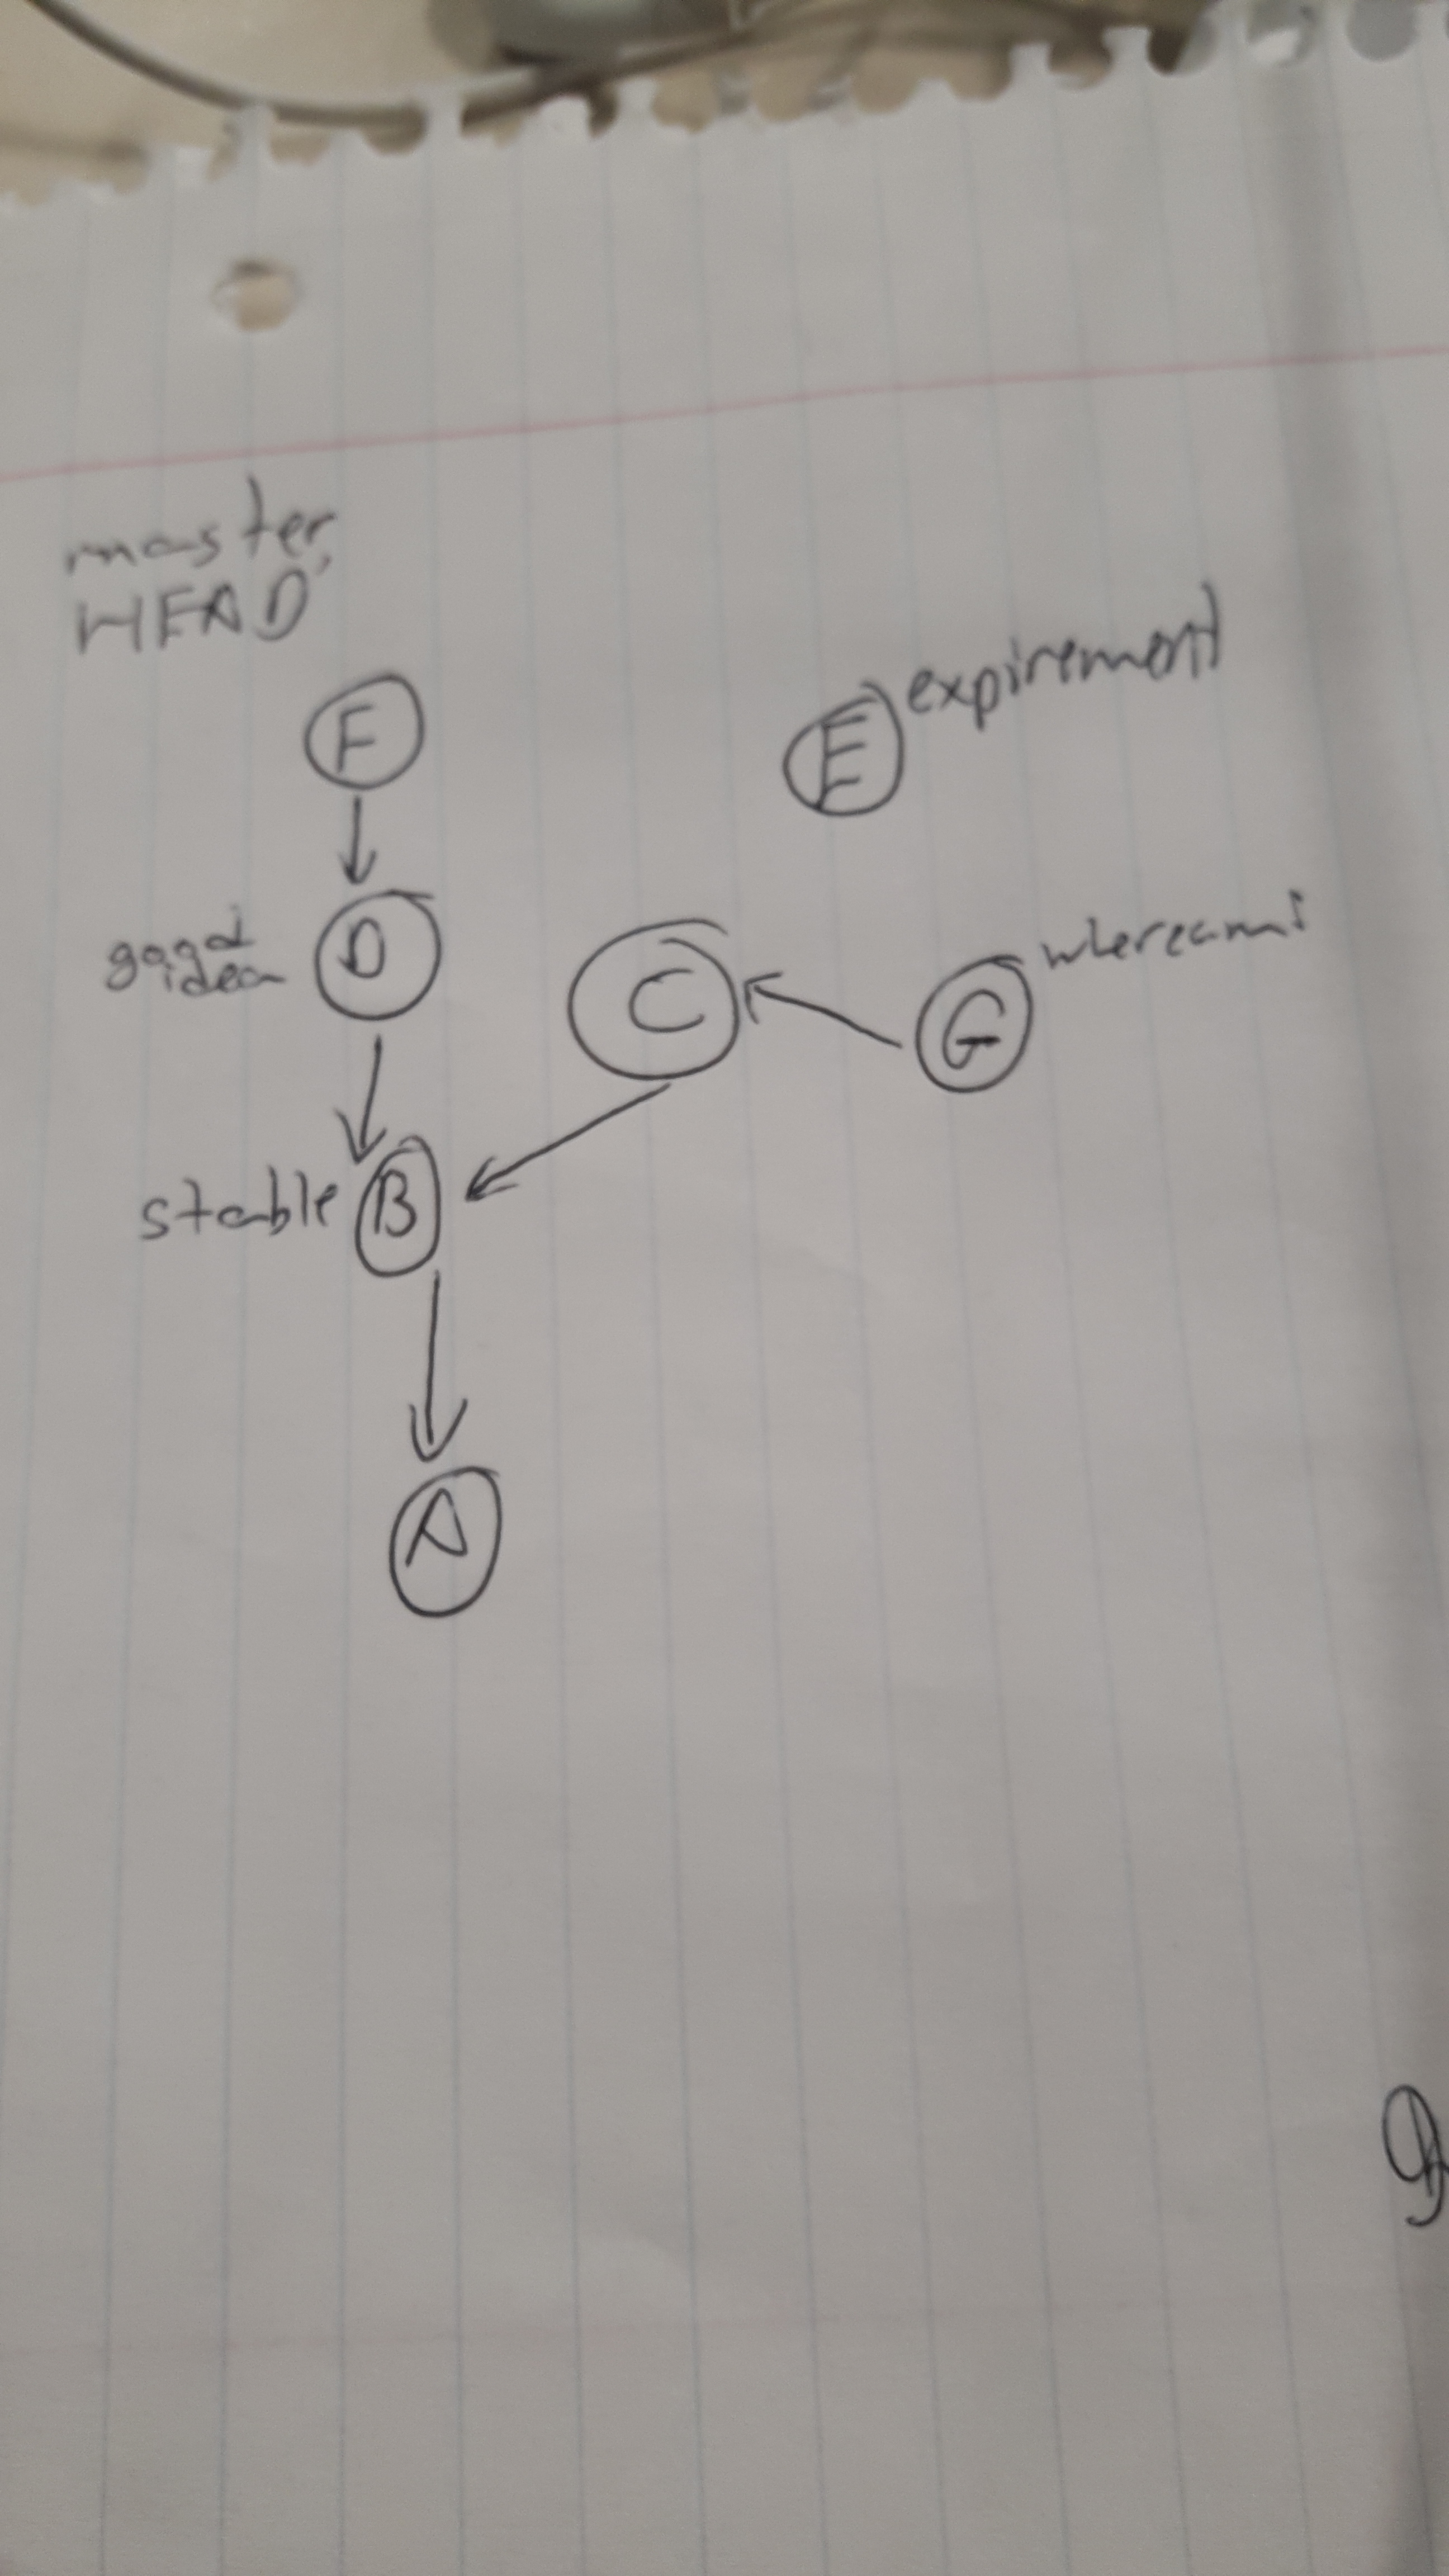 master,
HEAD
F
E expirement
good
idea
D
C
G whereami
stable B
A